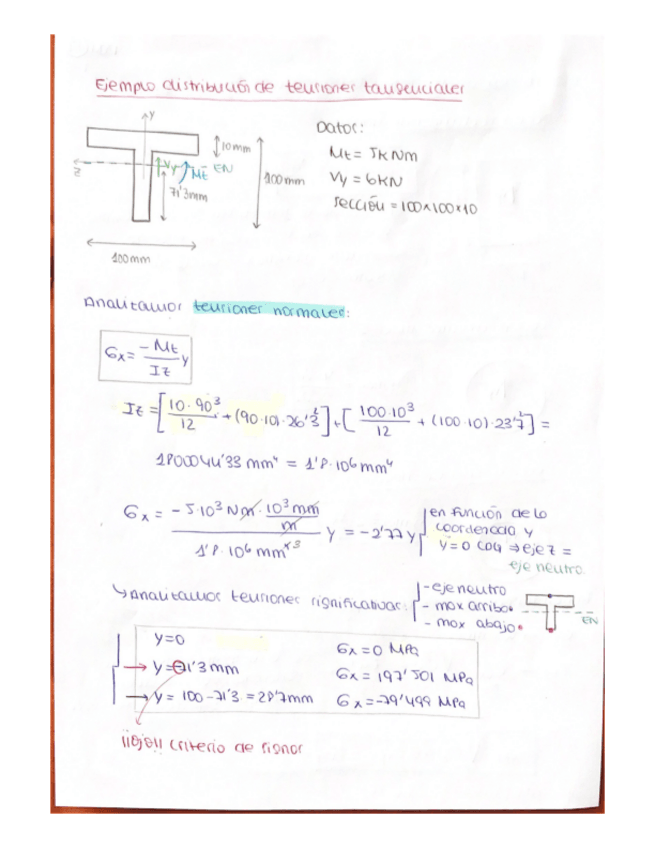 Ejemplo distribución de tensiones tangenciales
Datos:
Mz = 5KNm
Vy = 6KN
sección = 100x100x10
y
z
Vy
Mz
EN
10mm
100mm
71'3mm
100mm
Analizamos tensiones normales:
σx = -Mz/Iz y
Iz = [10·90³/12 + (90·10)·26'3²] + [100·10³/12 + (100·10)·23'7²] =
1800044'33 mm⁴ = 1'8·10⁶ mm⁴
σx = -5·10³ Nm · 10³ mm/m / 1'8·10⁶ mm⁴³ y = -2'77 y
en función de la
coordenada y
y=0 CDG ⇒ eje z =
eje neutro.
↳ Analizamos tensiones significativas:
- eje neutro
- max arriba
- max abajo
EN
y=0 σx = 0 MPa
→ y = -71'3 mm σx = 197'501 MPa
→ y = 100 - 71'3 = 28'7mm σx = -79'499 MPa
¡¡Ojo!! criterio de signos